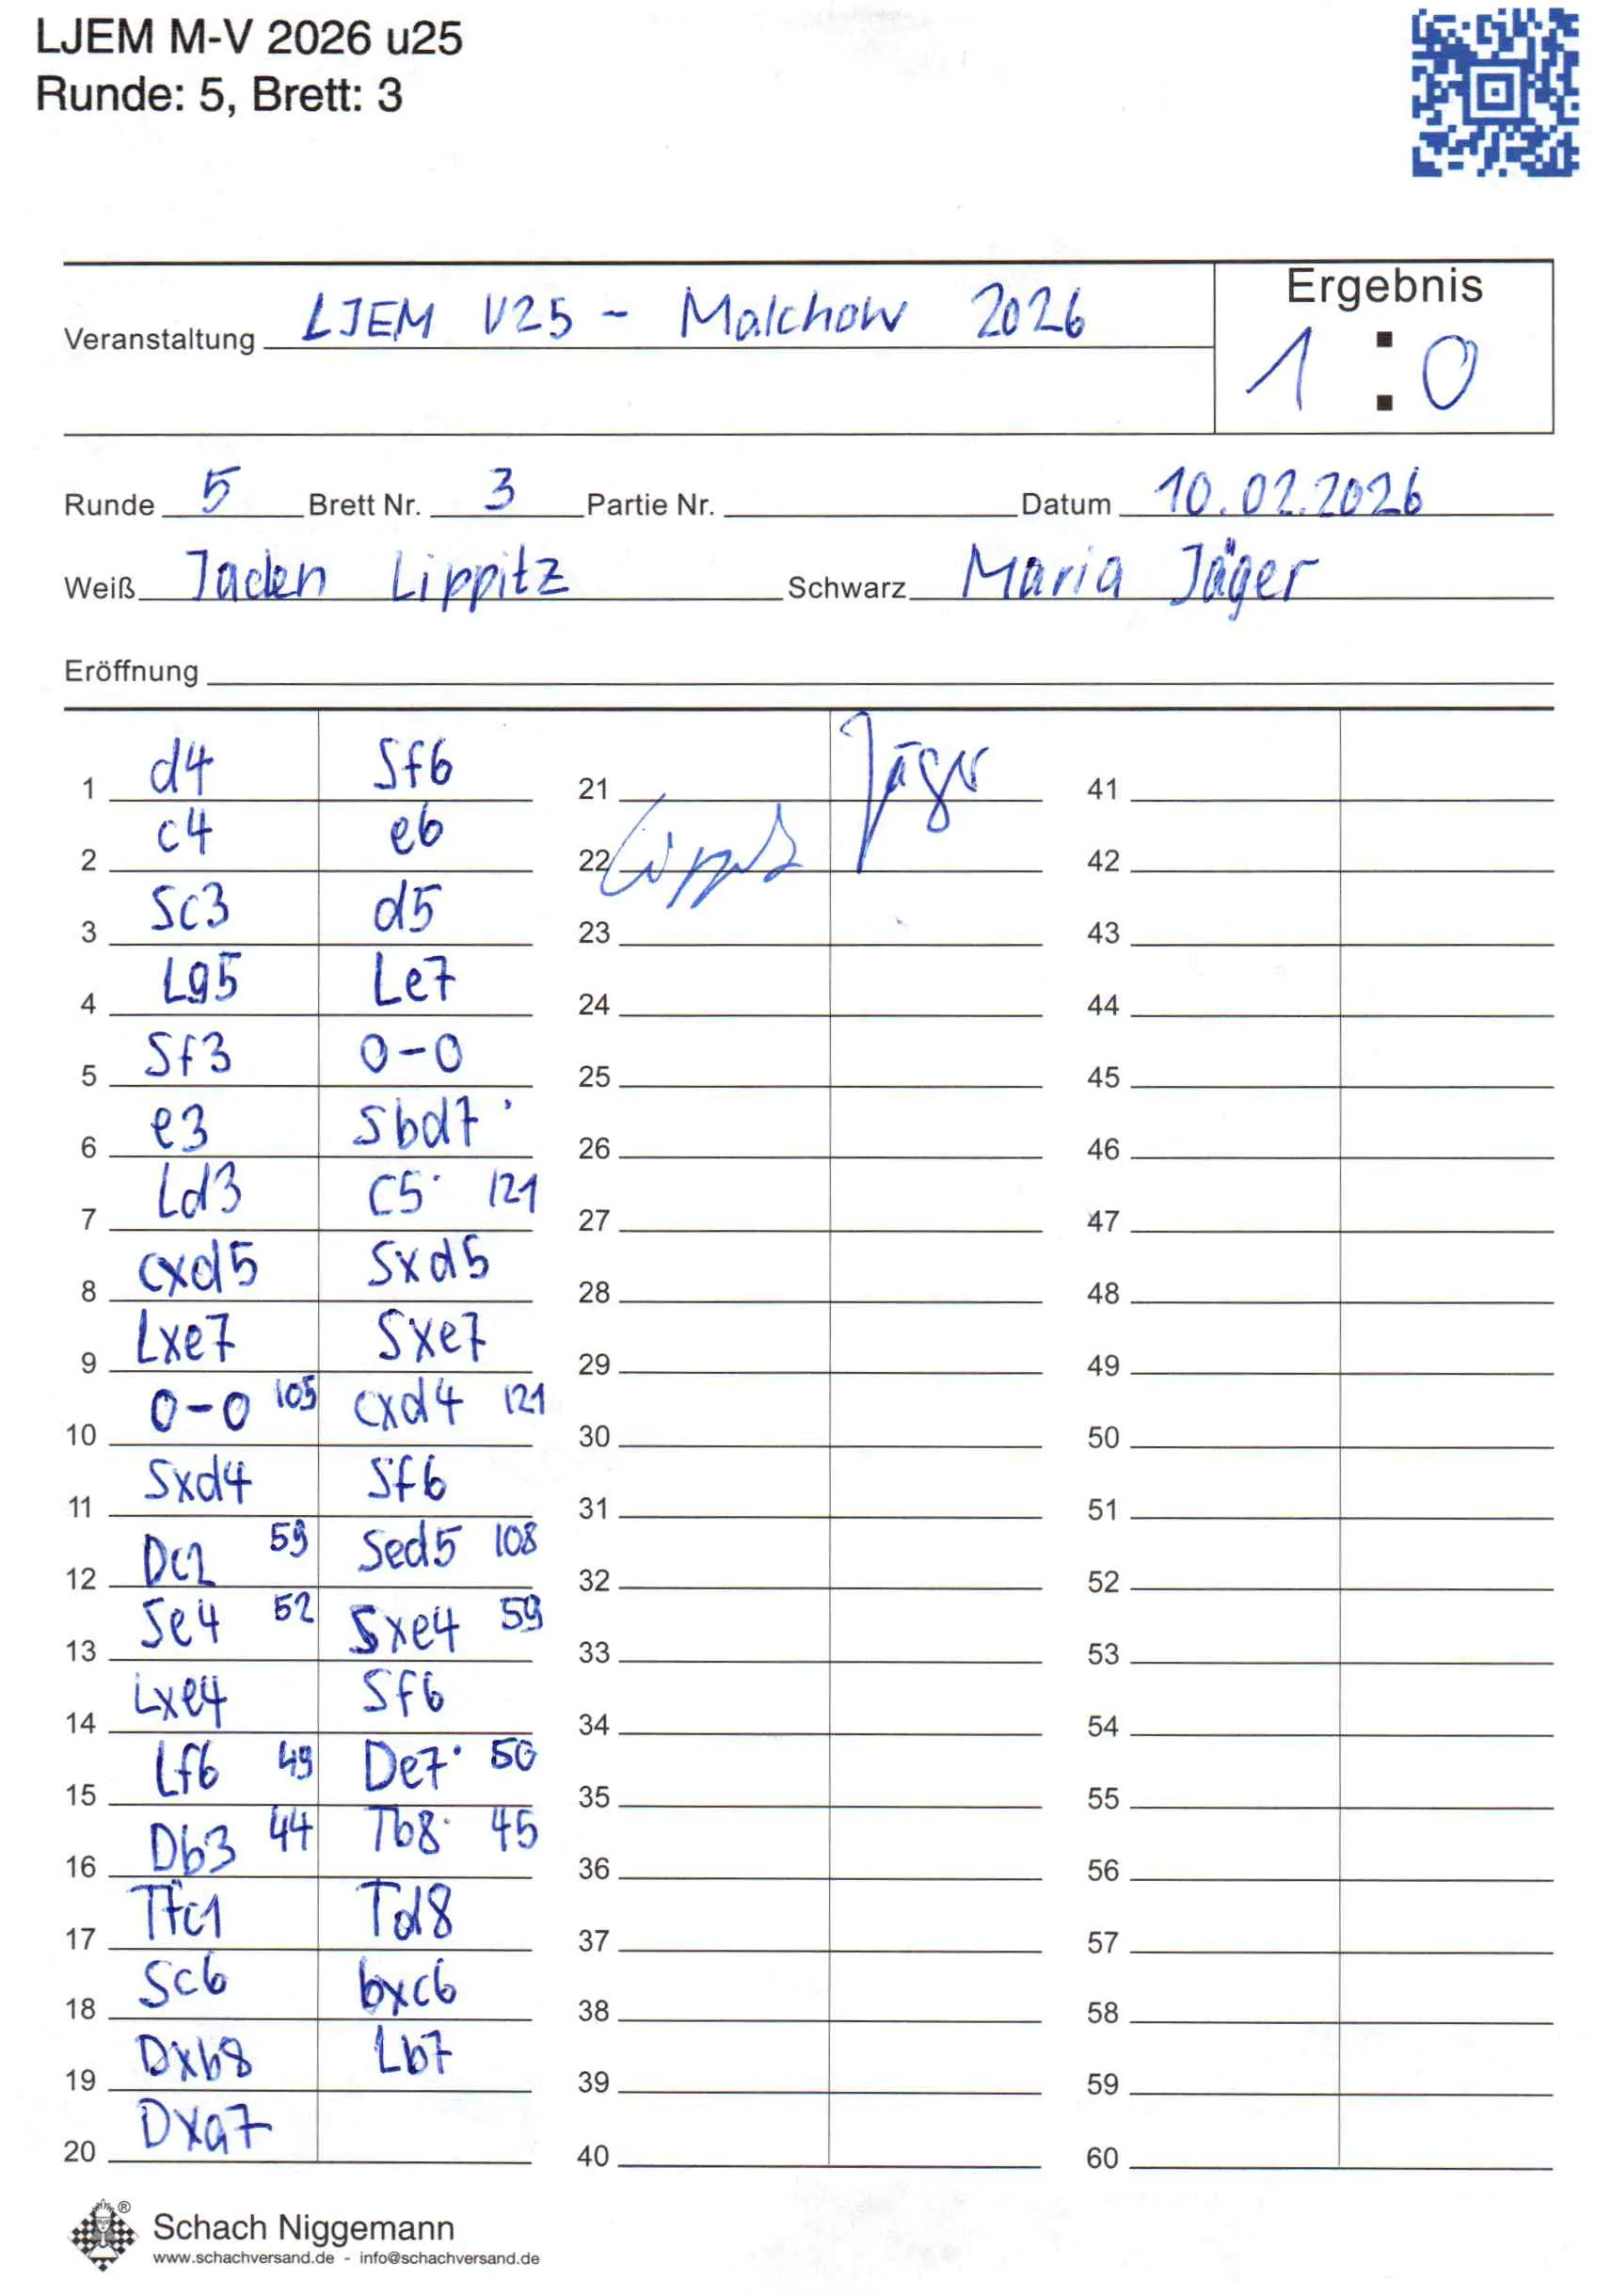 LJEM M-V 2026 u25
Runde: 5, Brett: 3
Ergebnis
Veranstaltung LJEM U25 - Malchow 2026
1 : 0
Runde 5 Brett Nr. 3 Partie Nr. Datum 10.02.2026
Weiß Jaden Lippitz Schwarz Maria Jäger
Eröffnung
1 d4 Sf6
2 c4 e6
3 Sc3 d5
4 Lg5 Le7
5 Sf3 0-0
6 e3 Sbd7
7 Ld3 c5 121
8 cxd5 Sxd5
9 Lxe7 Sxe7
10 0-0 105 cxd4 121
11 Sxd4 Sf6
12 Dc2 59 Sed5 108
13 Se4 52 Sxe4 59
14 Lxe4 Sf6
15 Lf6 49 De7 50
16 Db3 44 Tb8 45
17 Tfc1 Td8
18 Sc6 bxc6
19 Dxb8 Lb7
20 Dxa7
21 Jäger
22 Lippitz
23
24
25
26
27
28
29
30
31
32
33
34
35
36
37
38
39
40
41
42
43
44
45
46
47
48
49
50
51
52
53
54
55
56
57
58
59
60
Schach Niggemann
www.schachversand.de - info@schachversand.de